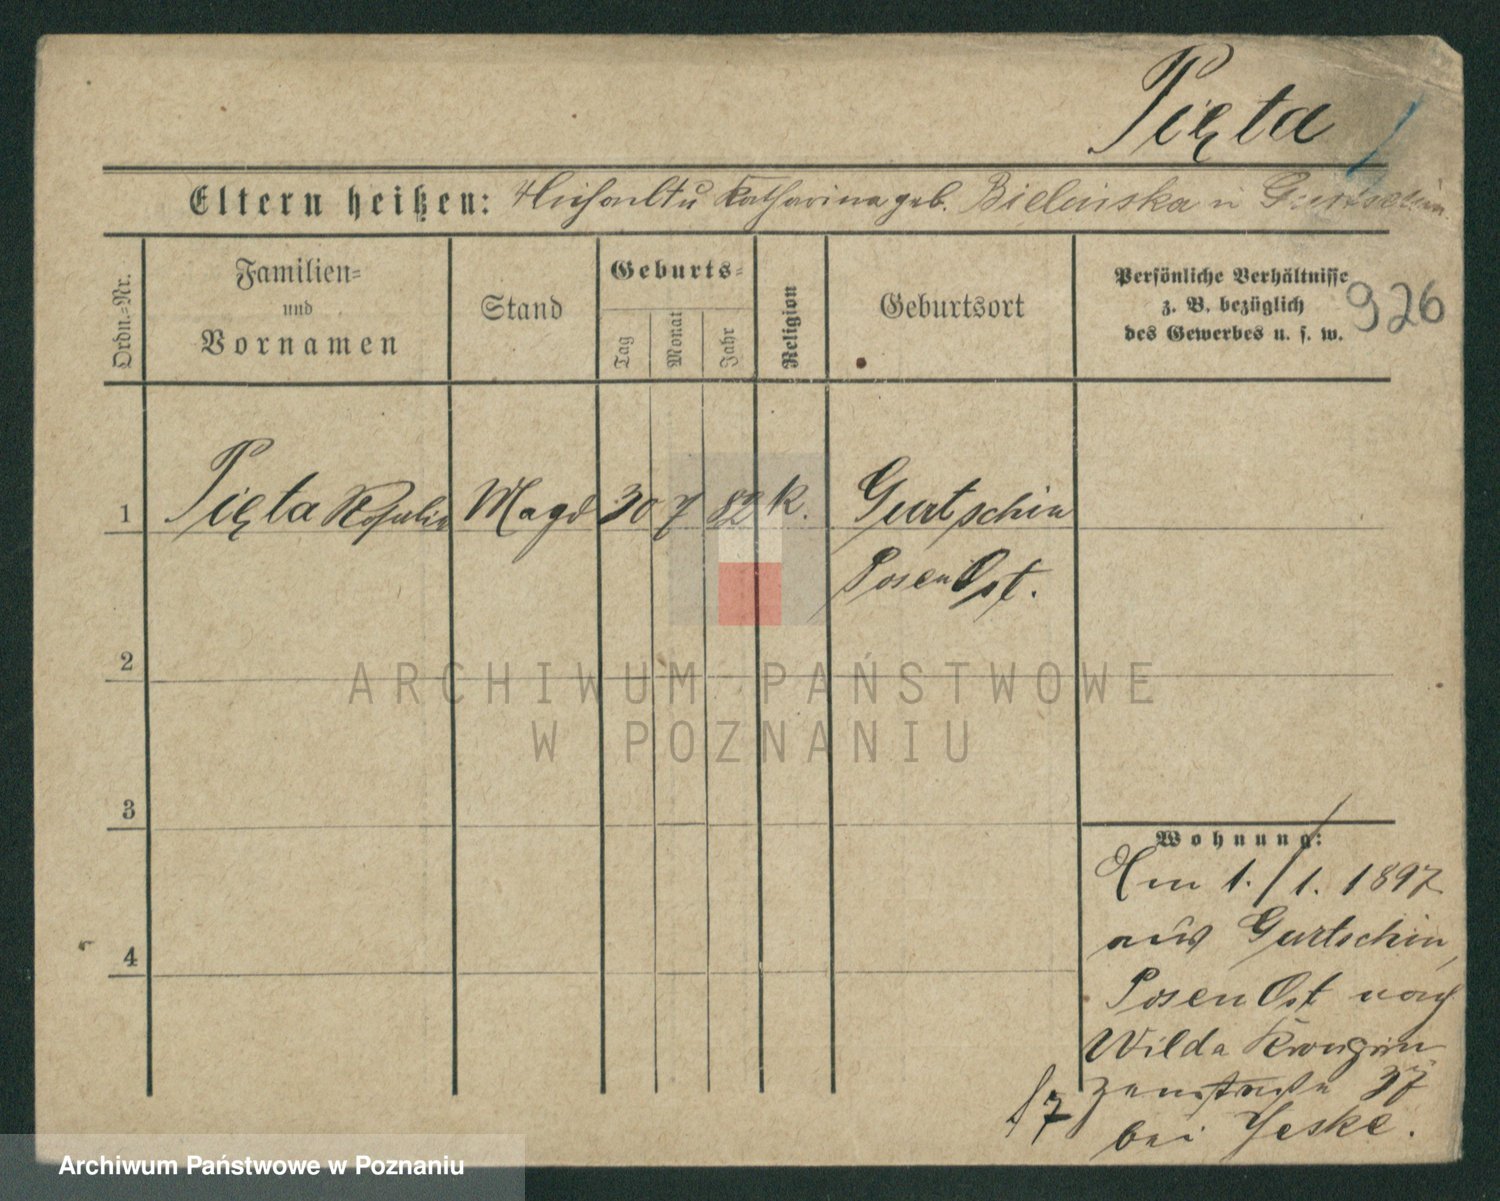 Pięta
Eltern heißen: Michael u Katharina geb. Bielaiska in Gurtschin.
Ordn.-Nr.
Familien-
und
Vornamen
Stand
Geburts-
Tag
Monat
Jahr
Religion
Geburtsort
Persönliche Verhältnisse
z. B. bezüglich
des Gewerbes u. s. w.
926
1 Pięta Rosalia Magd 30 7 82 K. Gurtschin
Posen Ost.
2
3
4
Wohnung:
Am 1./1. 1897
aus Gurtschin,
Posen Ost nach
Wilda Kronprin-
zenstraße 37
bei Jeske.
ARCHIWUM PAŃSTWOWE
W POZNANIU
Archiwum Państwowe w Poznaniu